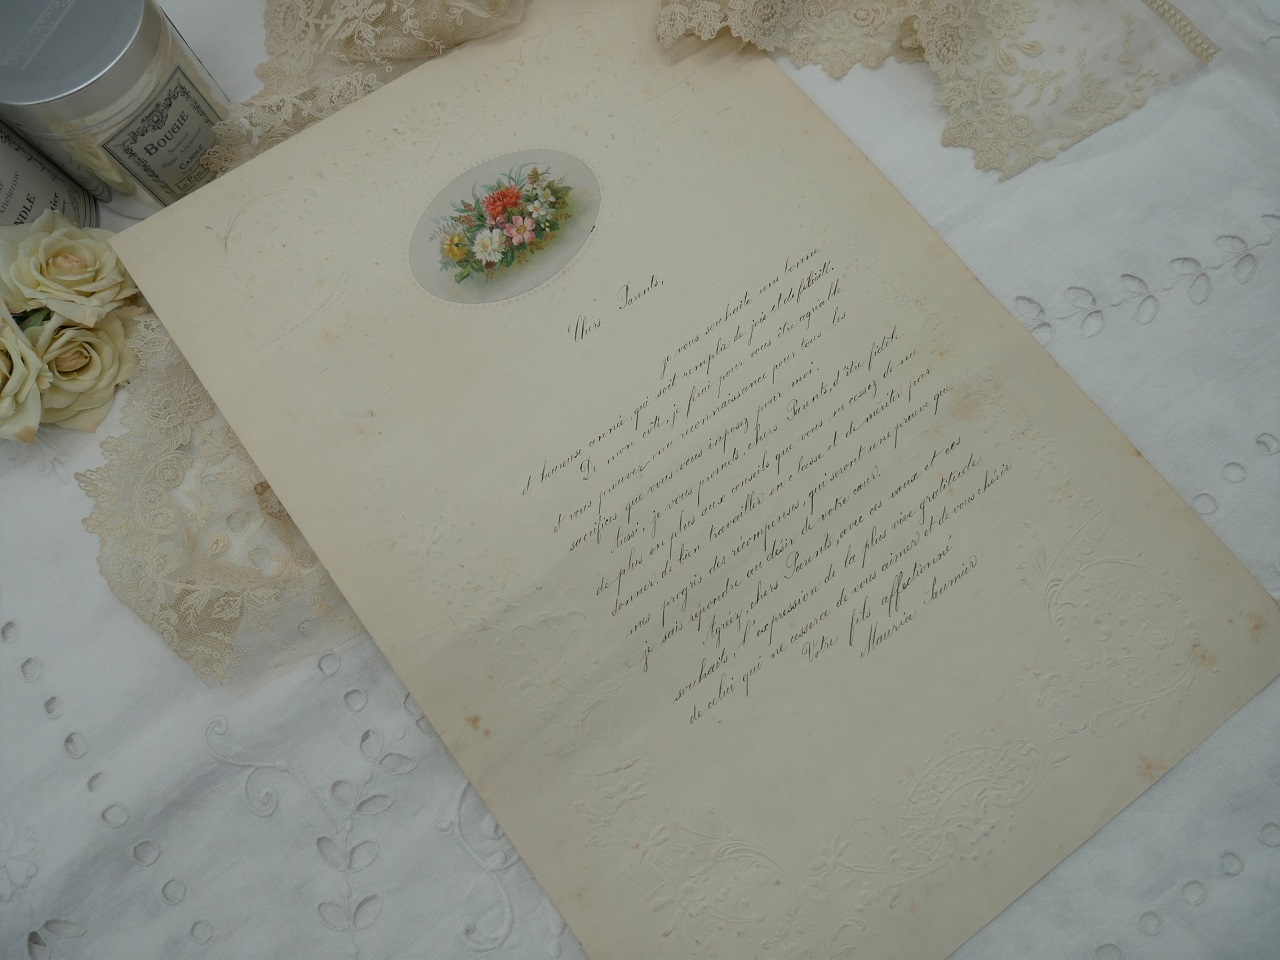 BOUGIE
CANDLE
NDLE
Chers Parents,
je vous souhaite une bonne
et heureuse année, qui soit remplie de joie et de félicité.
De mon côté, je ferai pour vous être agréable
et vous prouver ma reconnaissance pour tous les
sacrifices que vous vous imposez pour moi.
Aussi, je vous promets, chers Parents, d'être fidèle
de plus en plus aux conseils que vous ne cessez de me
donner, de bien travailler en classe et de mériter par
mes progrès des récompenses, qui seront une preuve que
je sais répondre au désir de votre cœur.
Agréez, chers Parents, avec ces vœux et ces
souhaits, l'expression de la plus vive gratitude
de celui qui ne cessera de vous aimer et de vous chérir
Votre fils affectionné
Maurice Saumier